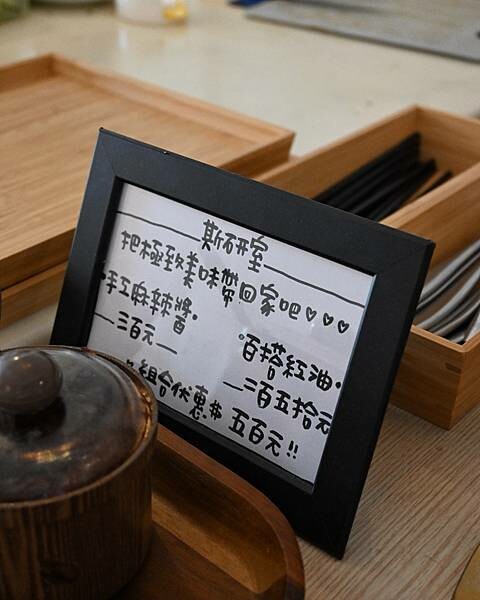 斯研室
把極致美味帶回家吧♡♡♡
手工麻辣醬·
—三百元—
·百搭紅油·
—二百五拾元
組合优惠$五百元!!